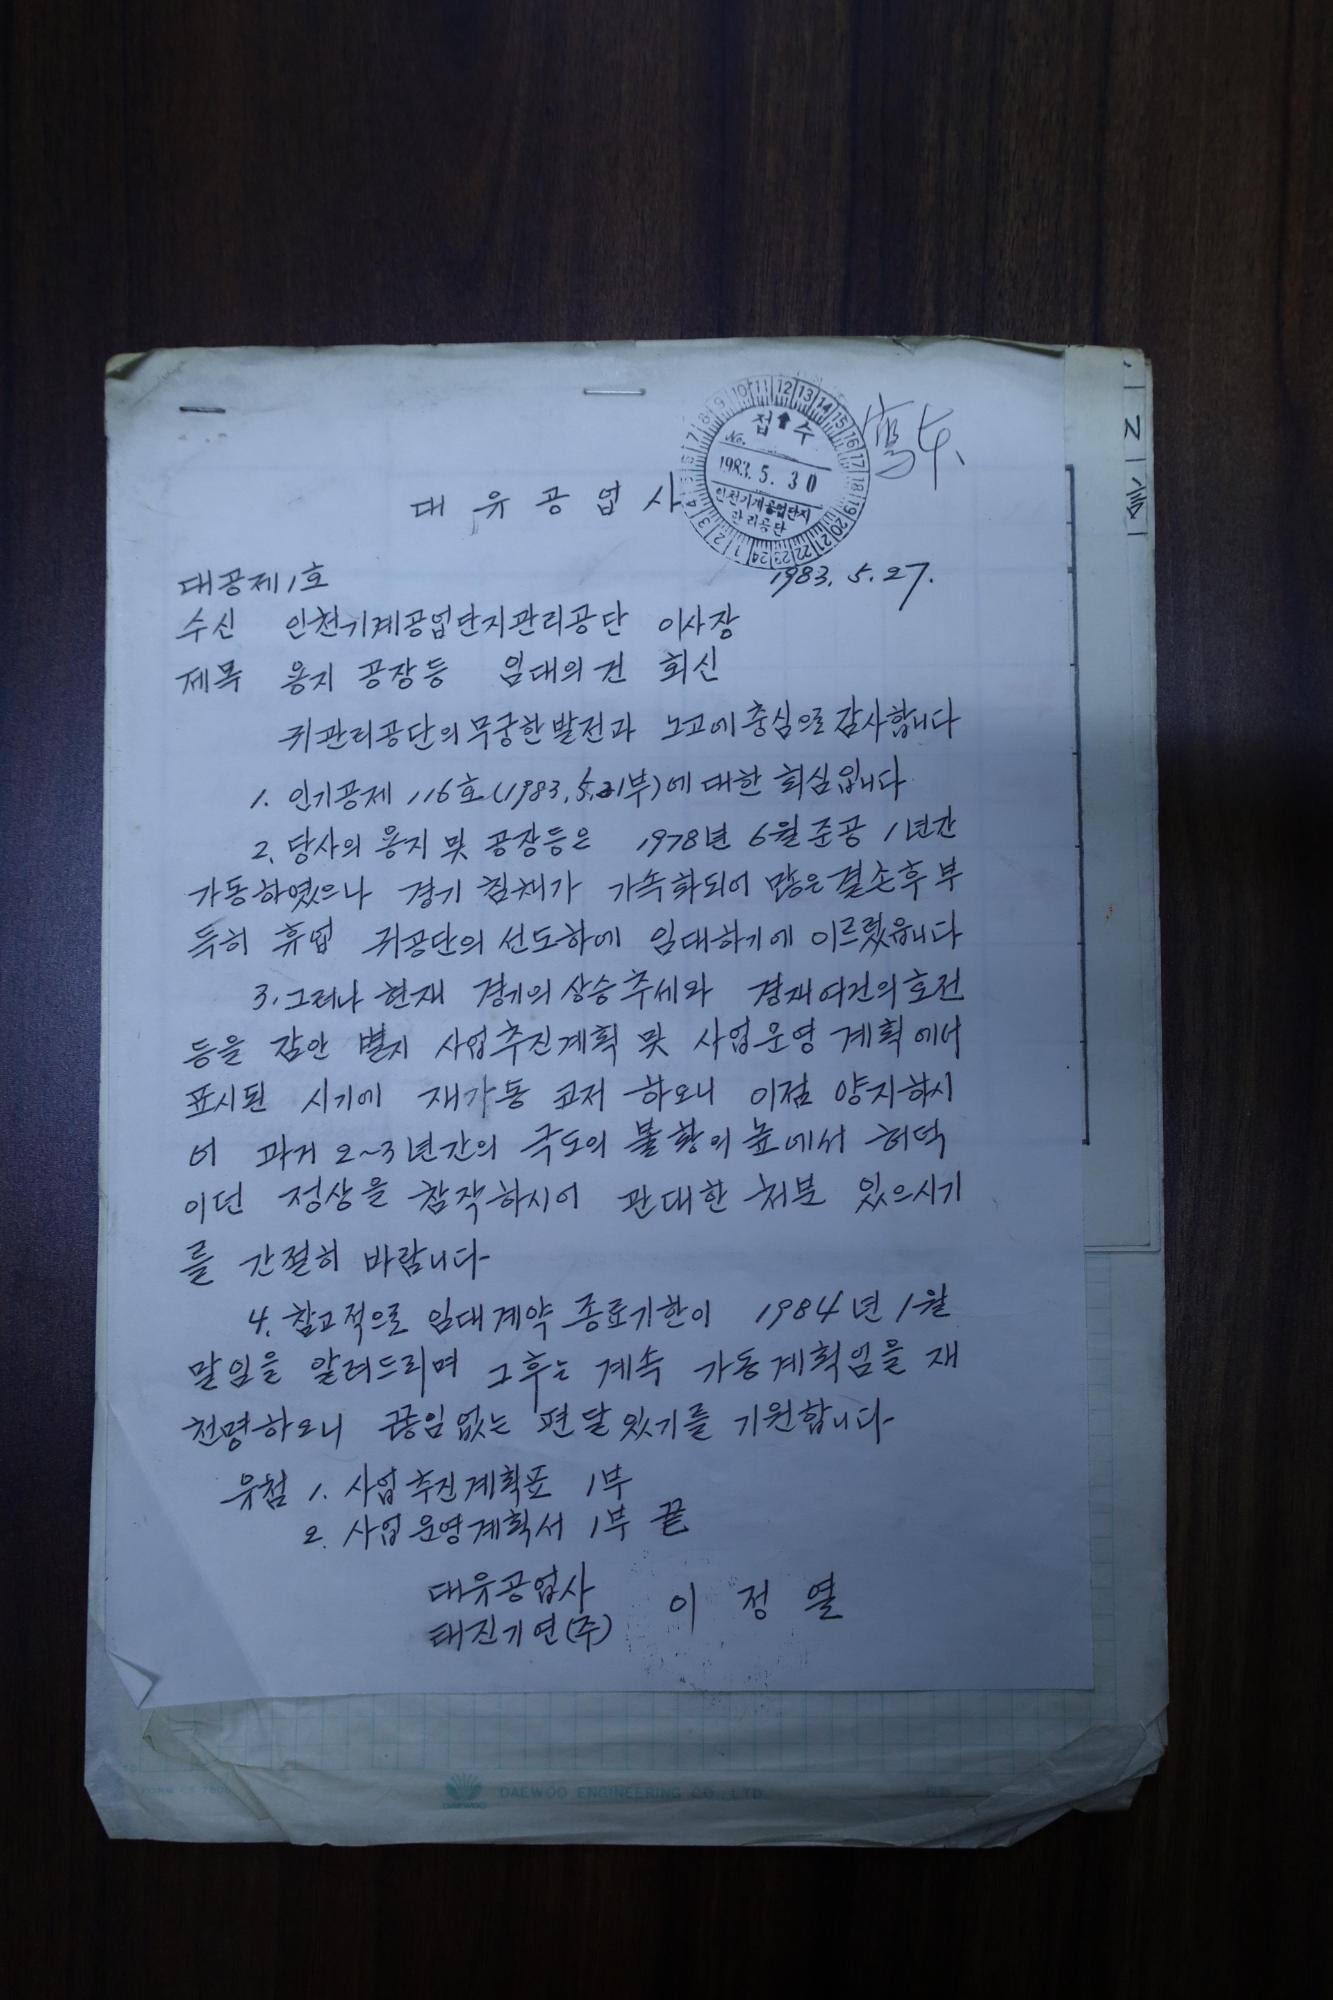 접수
No.
1983. 5. 30
인천기계공업단지
관리공단
대유공업사
대공제1호 1983. 5. 27.
수신 인천기계공업단지관리공단 이사장
제목 용지 공장등 임대의 건 회신
귀관리공단의 무궁한발전과 노고에 충심으로 감사합니다
1. 인기공제 116호(1983.5.21부)에 대한 회심입니다
2. 당사의 용지 및 공장등은 1978년 6월 준공 1년간
가동하였으나 경기 침체가 가속화되어 많은 결손후 부
득히 휴업 귀공단의 선도하에 임대하기에 이르렀읍니다
3. 그러나 현재 경기의 상승추세와 경재여건의 호전
등을 감안 별지 사업추진계획 및 사업운영 계획에서
표시된 시기에 재가동 코저 하오니 이점 양지하시
어 과거 2~3년간의 극도의 불황의 늪에서 허덕
이던 정상을 참작하시어 관대한 처분 있으시기
를 간절히 바람니다-
4. 참고적으로 임대계약 종료기한이 1984년 1월
말임을 알려드리며 그후는 계속 가동계획임을 재
천명하오니 끊임없는 편달있기를 기원합니다-
유첨 1. 사업추진계획표 1부
2. 사업운영계획서 1부 끝
대유공업사
태진기연(주) 이정열
DAEWOO DAEWOO ENGINEERING CO., LTD.